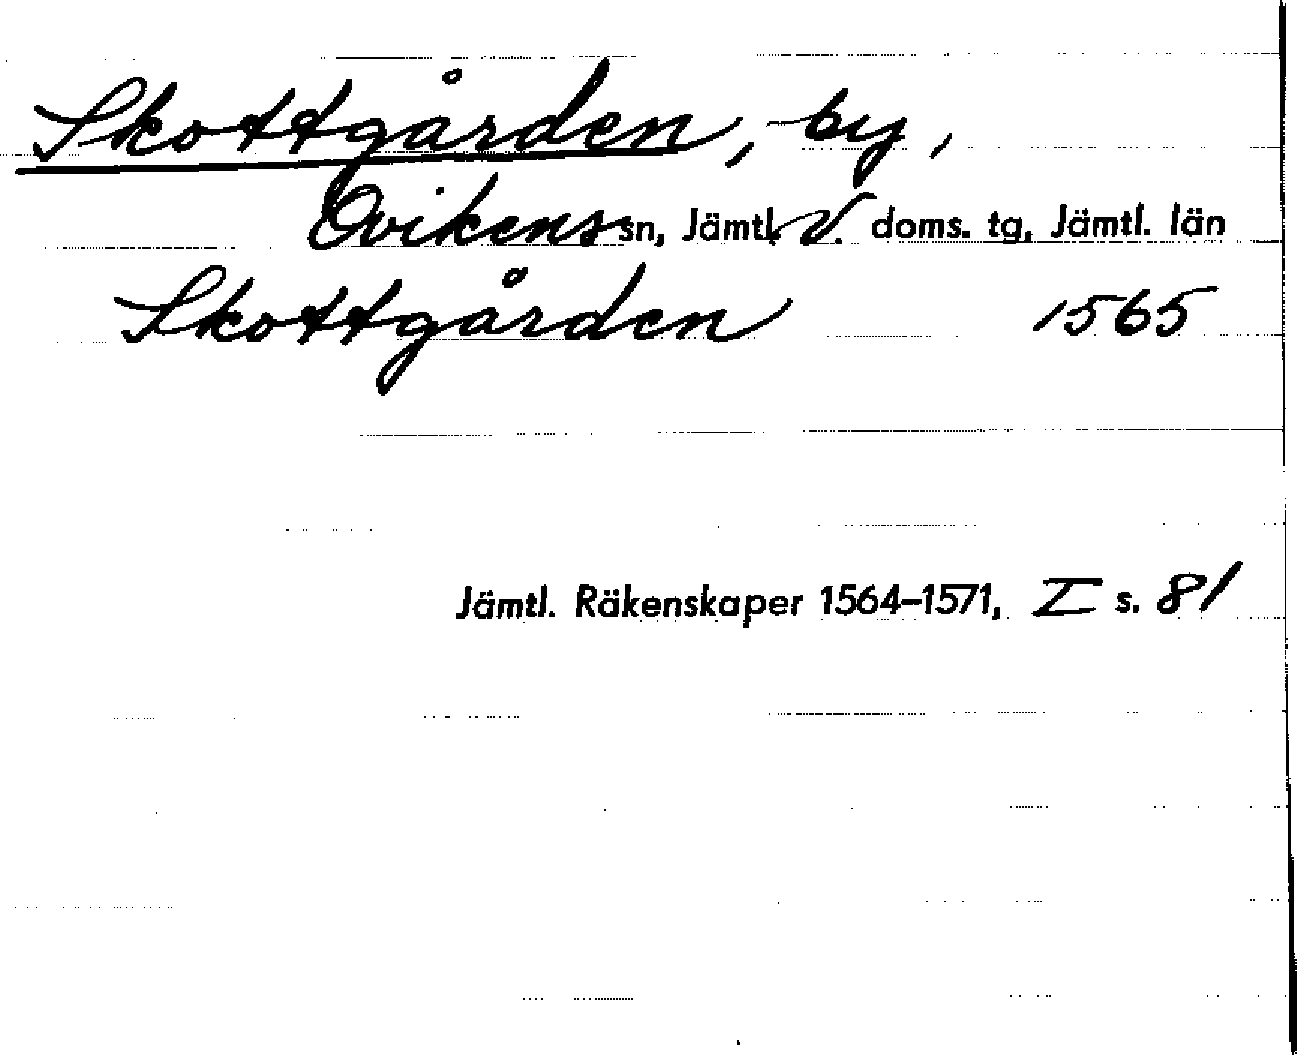 Skottgården, by,
Ovikens sn, Jämtl. V. doms. tg, Jämtl. län
Skottgården 1565
Jämtl. Räkenskaper 1564–1571, I s. 81